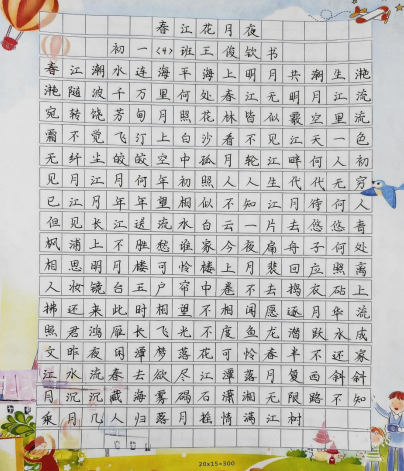 春江花月夜
初一〈4〉班王俊钦书
春江潮水连海平海上明月共潮生滟
滟随波千万里何处春江无明月江流
宛转饶芳甸月照花林皆似霰空里流
霜不觉飞汀上白沙看不见江天一色
无纤尘皎皎空中孤月轮江畔何人初
见月江月何年初照人人生代代无穷
已江月年年望相似不知江月待何人
但见长江送流水白云一片去悠悠青
枫浦上不胜愁谁家今夜扁舟子何处
相思明月楼可怜楼上月裴回应照离
人妆镜台玉户帘中卷不去捣衣砧上
拂还来此时相望不相闻愿逐月华流
照君鸿雁长飞光不度鱼龙潜跃水成
文昨夜闲潭梦落花可怜春半不还家
江水流春去欲尽江潭落月复西斜斜
月沉沉藏海雾碣石潇湘无限路不知
乘月几人归落月摇情满江树
20x15=300